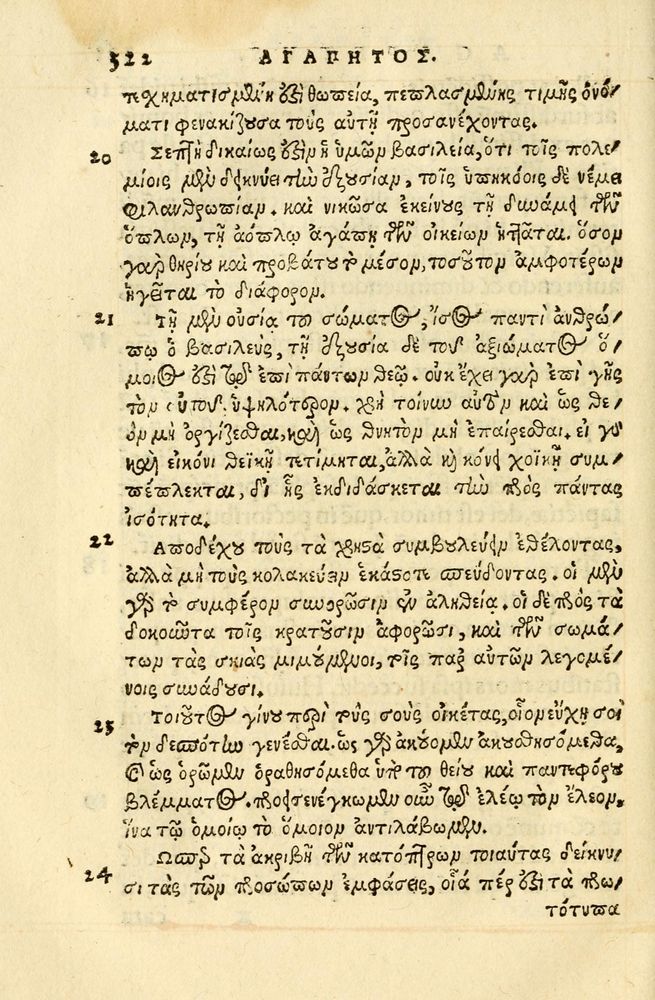 322 ΑΓΑΠΗΤΟΣ.
πεχηματισμένη ἐστὶ θωπεία, πεπλασμένης τιμῆς ὀνό/
ματι φενακίζουσα τοὺς αὐτῇ προσανέχοντας.
20 Σεπτὴ δικαίως ἐστὶν ἡ ὑμῶν βασιλεία, ὅτι τοῖς πολε/
μίοις μὲν δεικνύει τὴν ἐξουσίαν, τοῖς ὑπηκόοις δὲ νέμει
φιλανθρωπίαν. καὶ νικῶσα ἐκείνους τῇ δυνάμει τῶν
ὅπλων, τῇ ἀόπλῳ ἀγάπῃ τῶν οἰκείων ἡττᾶται. ὅσον
γὰρ θηρίου καὶ προβάτου τὸ μέσον, τοσοῦτον ἀμφοτέρων
ἡγεῖται τὸ διάφορον.
21 Τῇ μὲν οὐσίᾳ τοῦ σώματος, ἴσος παντὶ ἀνθρώ/
πῳ ὁ βασιλεύς, τῇ ἐξουσίᾳ δὲ τοῦ ἀξιώματος ὅ/
μοιός ἐστι τῷ ἐπὶ πάντων θεῷ. οὐκ ἔχει γὰρ ἐπὶ γῆς
τὸν αὐτοῦ ὑψηλότερον. χρὴ τοίνυν αὐτὸν καὶ ὡς θε/
ὸν μὴ ὀργίζεσθαι, καὶ ὡς θνητὸν μὴ ἐπαίρεσθαι. εἰ γὰρ
καὶ εἰκόνι θεϊκῇ τετίμηται, ἀλλὰ καὶ κόνει χοϊκῇ συμ/
πέπλεκται, δι' ἧς ἐκδιδάσκεται τὴν πρὸς πάντας
ἰσότητα.
22 Ἀποδέχου τοὺς τὰ χρηστὰ συμβουλεύειν ἐθέλοντας,
ἀλλὰ μὴ τοὺς κολακεύειν ἑκάστοτε σπεύδοντας. οἱ μὲν
γὰρ τὸ συμφέρον συνορῶσιν ἐν ἀληθείᾳ. οἱ δὲ πρὸς τὰ
δοκοῦντα τοῖς κρατοῦσιν ἀφορῶσι, καὶ τῶν σωμά/
των τὰς σκιὰς μιμούμενοι, τοῖς παρ' αὐτῶν λεγομέ/
νοις συνᾴδουσι.
23 Τοιοῦτος γίνου περὶ τοὺς σοὺς οἰκέτας, οἷον εὔχῃ σοι
τὸν δεσπότην γενέσθαι. ὡς γὰρ ἀκούομεν ἀκουσθησόμεθα,
καὶ ὡς ὁρῶμεν ὁραθησόμεθα ὑπὸ τοῦ θείου καὶ παντεφόρου
βλέμματος. προσενέγκωμεν οὖν τῷ ἐλέῳ τὸν ἔλεον,
ἵνα τῷ ὁμοίῳ τὸ ὅμοιον ἀντιλάβωμεν.
24 Ὥσπερ τὰ ἀκριβῆ τῶν κατόπτρων τοιαύτας δείκνυ/
σι τὰς τῶν προσώπων ἐμφάσεις, οἷά πέρ ἐστι τὰ πρω/
τότυπα